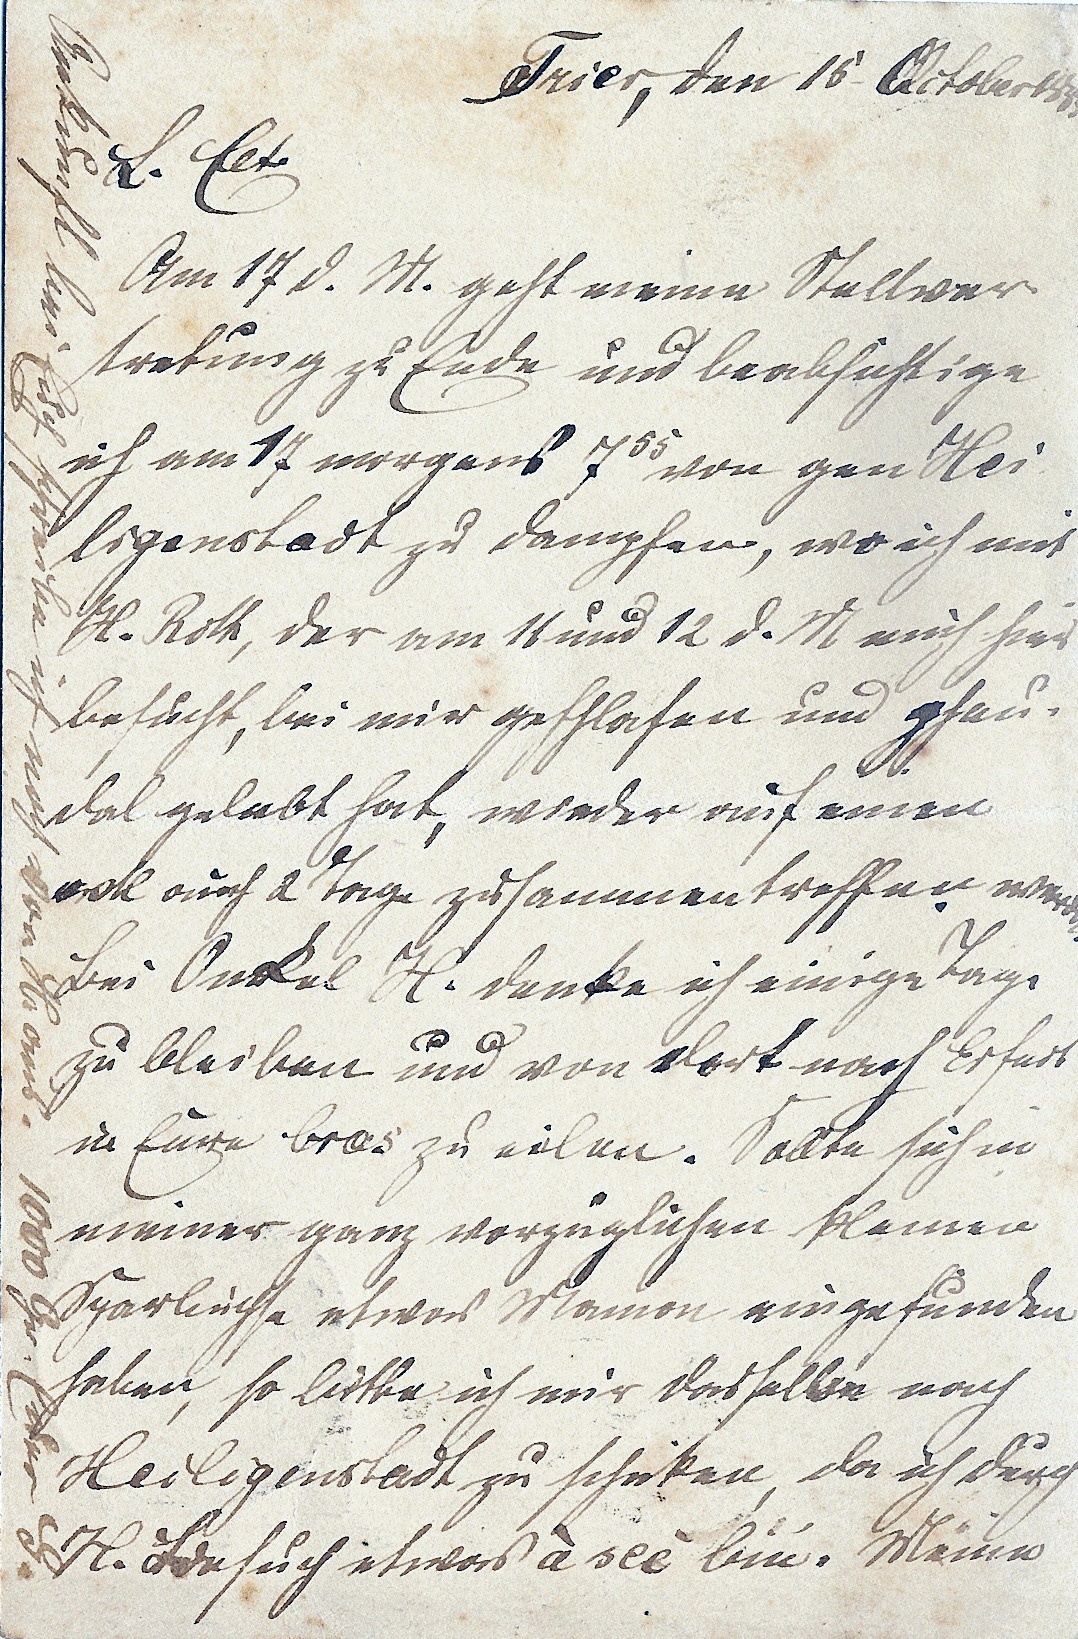 Trier, den 15 October
L. Elt.
Am 17 d. M. geht meine Stellver-
tretung zu Ende und beabsichtige
ich am 17 morgens 7⁵⁵ von gen Hei
ligenstadt zu dampfen, wo ich mit
H. Roth, der am 11 und 12 d. M mich hier
besucht, bei mir geschlafen und
gelebt hat, wieder auf einen
auch 2 Tage zusammentreffen werde.
Bei Onkel H. denke ich einige Tage
zu bleiben und von dort nach Erfurt
in Eure zu eilen. Sollte sich in
meiner ganz vorzüglichen kleinen
Sparbüchse etwas Mamon eingefunden
haben, so bitte ich mir dasselbe nach
Heiligenstadt zu schicken, da ich durch
H. Besuch etwas à sec bin. Meine
Ankunft bei Euch schreibe ich noch von H. aus. 1000 Gr. Euer